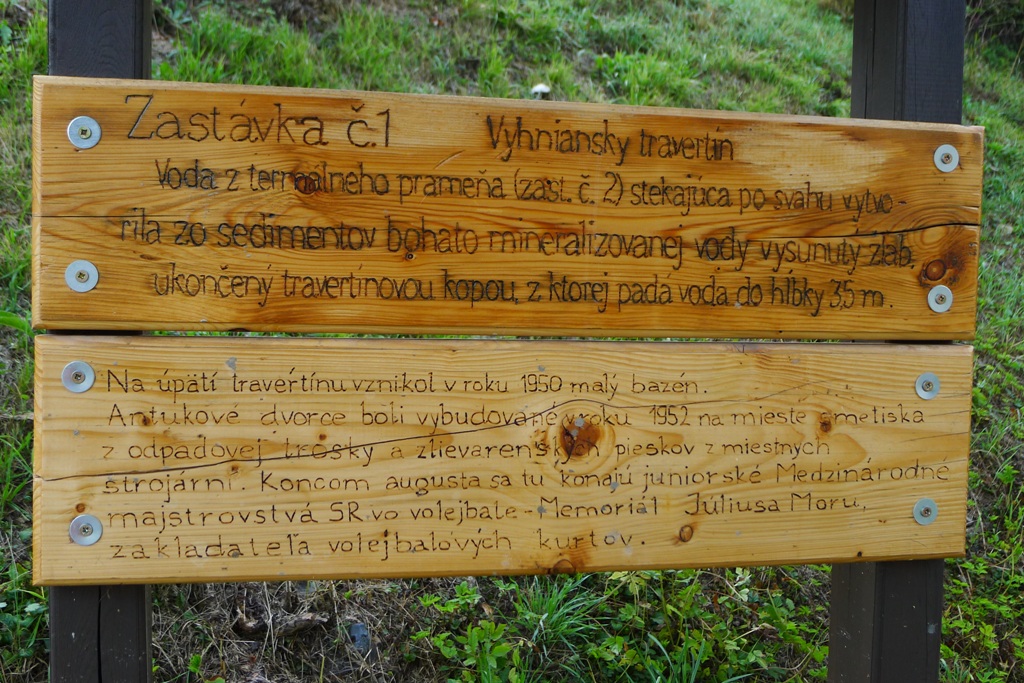 Zastávka č.1 Vyhniansky travertín
Voda z termálneho prameňa (zast. č. 2) stekajúca po svahu vytvo-
rila zo sedimentov bohato mineralizovanej vody vysunutý žľab,
ukončený travertínovou kopou, z ktorej padá voda do hĺbky 3,5 m.
Na úpätí travertínu vznikol v roku 1950 malý bazén.
Antukové dvorce boli vybudované v roku 1952 na mieste smetiska
z odpadovej trosky a zlievarenských pieskov z miestnych
strojární. Koncom augusta sa tu konajú juniorské Medzinárodné
majstrovstvá SR vo volejbale - Memoriál Júliusa Moru,
zakladateľa volejbalových kurtov.